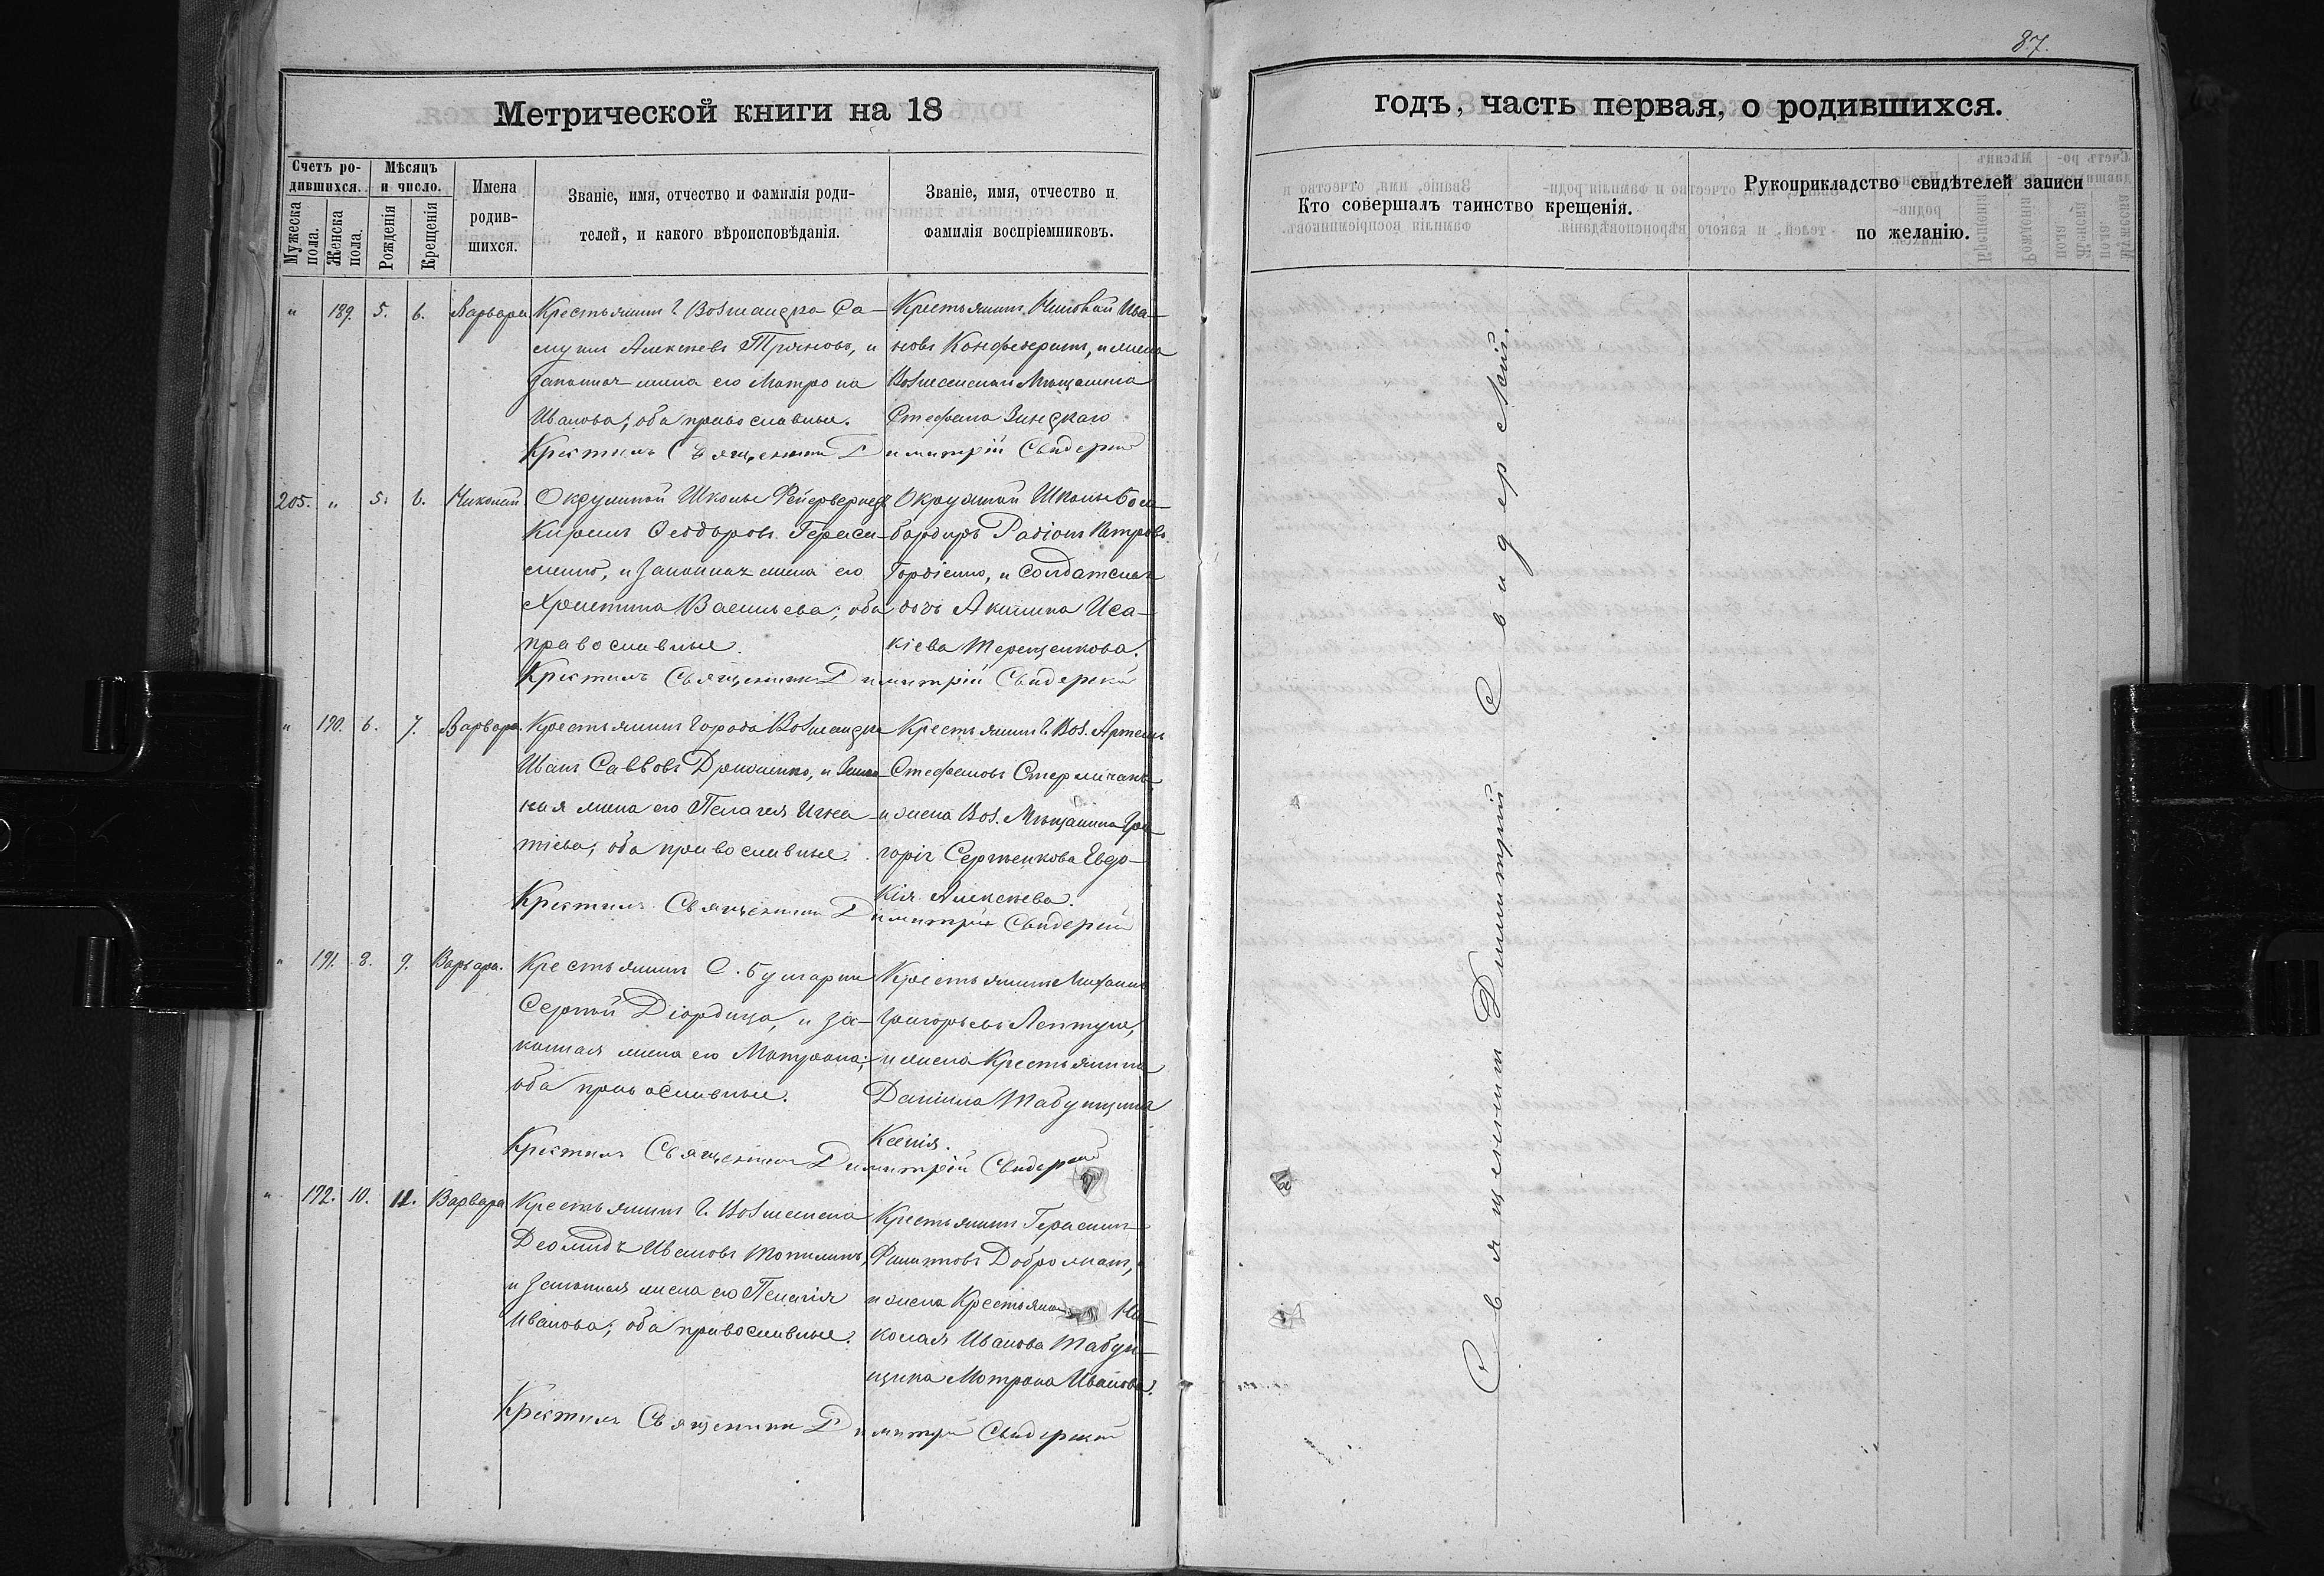 87.
Метрической книги на 18
годъ, часть первая, о родившихся.
Счетъ родившихся.
Мужеска пола.
Женска пола.
Мѣсяцъ и число.
Рожденія
Крещенія
Имена родившихся.
Званіе, имя, отчество и фамилія родителей, и какого вѣроисповѣданія.
Званіе, имя, отчество и фамилія воспріемниковъ.
Кто совершалъ таинство крещенія.
Рукоприкладство свидѣтелей записи
по желанію.
" 189. 5. 6. Варвара
Крестьянинъ г. Вознесенска Са-
Алексѣевъ и
законная жена его Матрона
Иванова; оба православные.
Крестьянинъ Николай Ива-
новъ и жена
Вознесенскаго Мѣщанина
Стефана
Крестилъ Священникъ Димитрій Свидерскій
205. " 5. 6. Николай.
Окружной Школы
Кирилъ Ѳеодоровъ Гераси-
менко, и законная жена его
Христина Васильева; оба
православные.
Окружной Школы Бом-
бардиръ Радіонъ Петровъ
Гордіенко, и солдатская
дочь Акилина Иса-
кіева Терещенкова.
Крестилъ Священникъ Димитрій Свидерскій
" 190. 6. 7. Варвара.
Крестьянинъ города Вознесенска
Иванъ Саввовъ и закон-
ная жена его Пелагея Игна-
тіева; оба православные.
Крестьянинъ г. Воз. Артемъ
Стефановъ
и жена Воз. Мѣщанина Гри-
горія Сергѣенкова Евдо-
кія Алексѣева.
Крестилъ Священникъ Димитрій Свидерскій
" 191. 8. 9. Варвара.
Крестьянинъ С. Булгарки
Сергѣй Діордица, и за-
конная жена его Матрона;
оба православные.
Крестьянинъ Михаилъ
Григорьевъ Лептуга,
и жена Крестьянина
Даніила Табунщика
Ксенія.
Крестилъ Священникъ Димитрій Свидерскій
" 192. 10. 11. Варвара
Крестьянинъ г. Вознесенска
Деомидъ Ивановъ Топилинъ,
и законная жена его Пелагія
Иванова; оба православные.
Крестьянинъ Герасимъ
Филиповъ
и жена Крестьянина Ни-
колая Иванова Табун-
щика Матрона Иванова.
Крестилъ Священникъ Димитрій Свидерскій
Священникъ Димитрій Свидерскій.